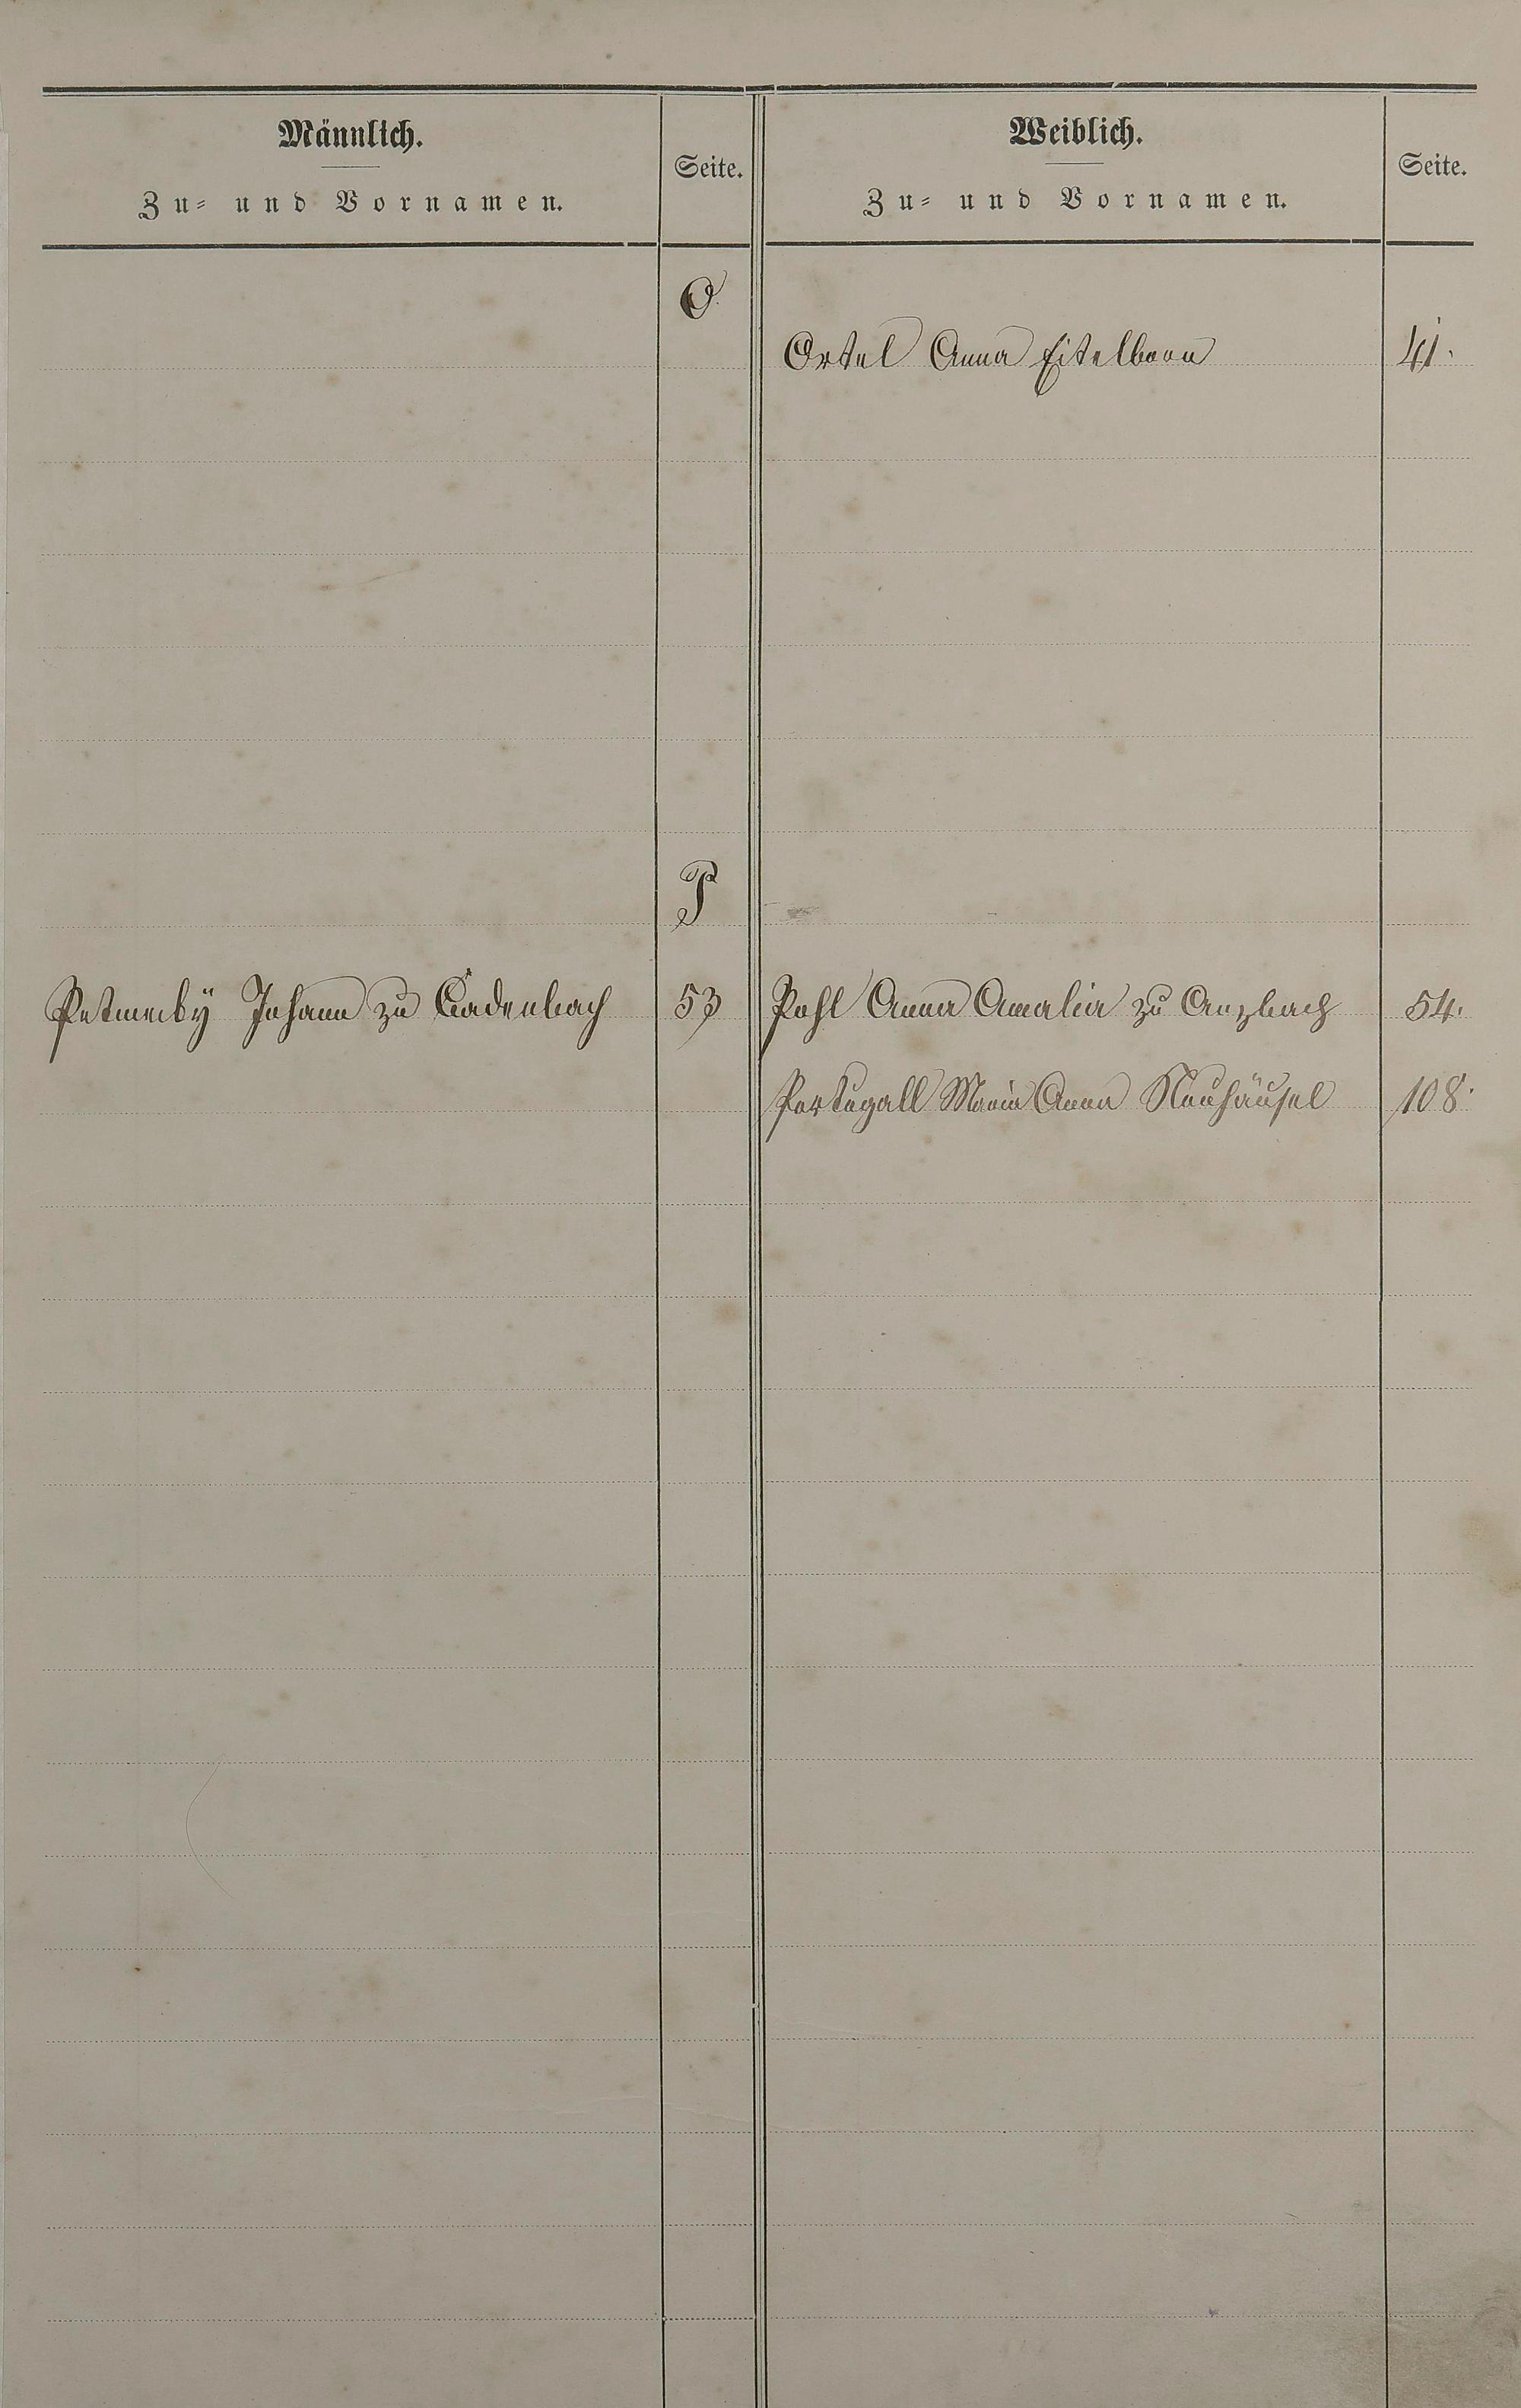 Männlich.
Zu- und Vornamen.
Seite.
Weiblich.
Zu- und Vornamen.
Seite.
O.
Ortel Anna Eitelborn 41.
P
Petmecky Johann zu Cadenbach 53
Pohl Anna Amalia zu Arzbach 54.
Portugall Maria Anna Neuhäusel 108.